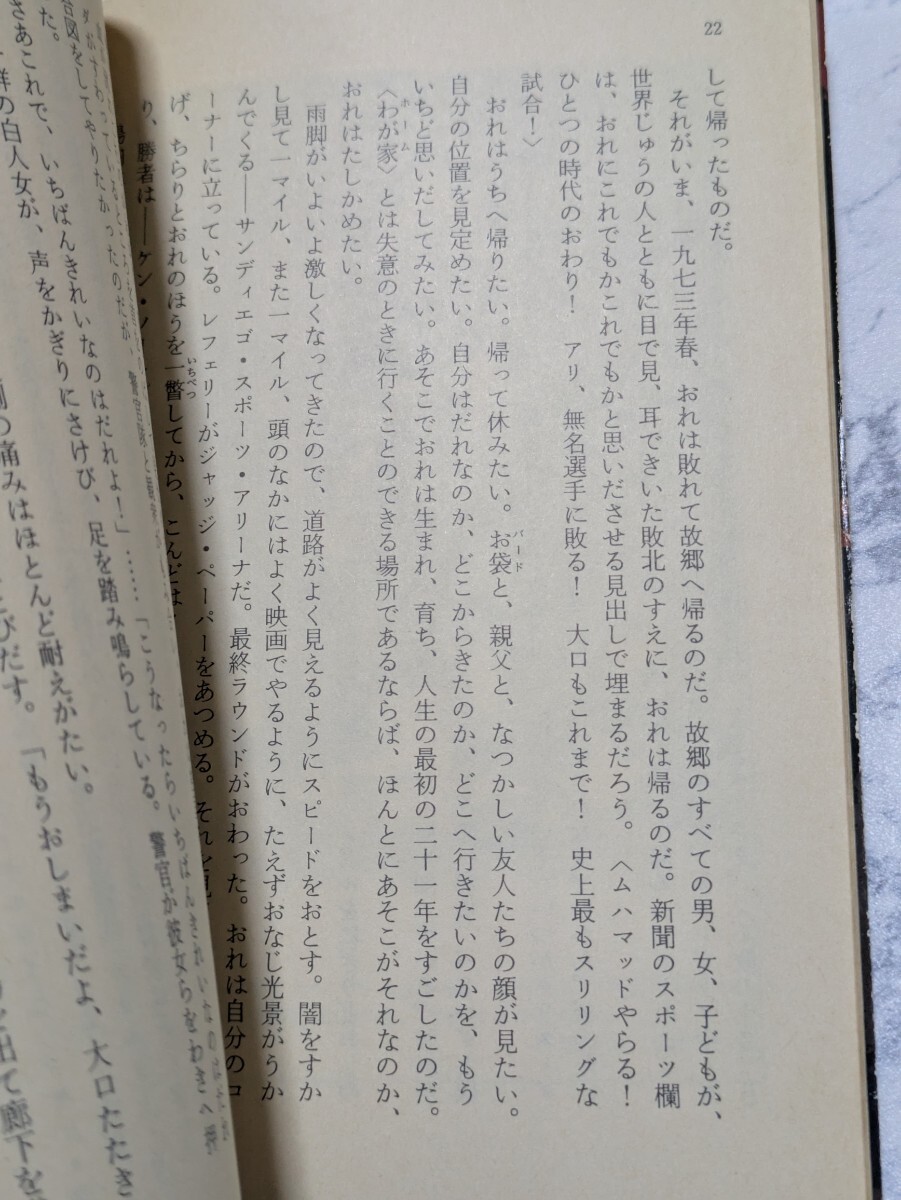 22
して帰ったものだ。
それがいま、一九七三年春、おれは敗れて故郷へ帰るのだ。故郷のすべての男、女、子どもが、
世界じゅうの人とともに目で見、耳できいた敗北のすえに、おれは帰るのだ。新聞のスポーツ欄
は、おれにこれでもかこれでもかと思いださせる見出しで埋まるだろう。〈ムハマッドやらる!
ひとつの時代のおわり! アリ、無名選手に敗る! 大口もこれまで! 史上最もスリリングな
試合!〉
おれはうちへ帰りたい。帰って休みたい。お袋と、親父と、なつかしい友人たちの顔が見たい。
バード
自分の位置を見定めたい。自分はだれなのか、どこからきたのか、どこへ行きたいのかを、もう
いちど思いだしてみたい。あそこでおれは生まれ、育ち、人生の最初の二十一年をすごしたのだ。
〈わが家〉とは失意のときに行くことのできる場所であるならば、ほんとにあそこがそれなのか、
ホーム
おれはたしかめたい。
雨脚がいよいよ激しくなってきたので、道路がよく見えるようにスピードをおとす。闇をすか
し見て一マイル、また一マイル、頭のなかにはよく映画でやるように、たえずおなじ光景がうか
んでくる——サンディエゴ・スポーツ・アリーナだ。最終ラウンドがおわった。おれは自分のコ
ーナーに立っている。レフェリーがジャッジ・ペーパーをあつめる。それを
げ、ちらりとおれのほうを一瞥してから、こんどは
いちべつ
り、勝者は——ケン・
「こうなったらいちばんきれいなのは
合図をしてやりたかったのだが、警官隊と
た。
さあこれで、いちばんきれいなのはだれよ!」……
群の白人女が、声をかぎりにさけび、足を踏み鳴らしている。警官が彼女らをわきへ押
の痛みはほとんど耐えがたい。
びだす。「もうおしまいだよ、大口たたき
出て廊下を